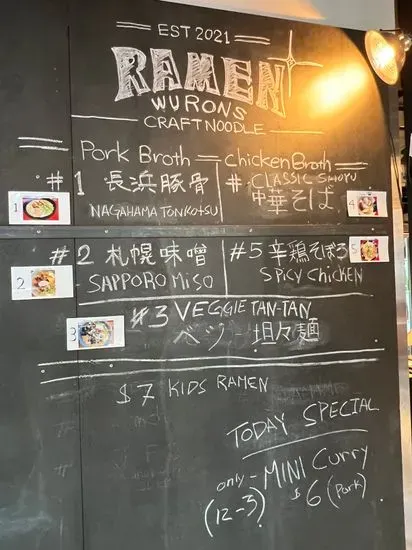 EST 2021
RAMEN
WURONS
CRAFT NOODLE
Pork Broth
Chicken Broth
#1 長浜豚骨
NAGAHAMA TONKOTSU
1
# CLASSIC SHOYU
中華そば
4
#2 札幌味噌
SAPPORO MISO
2
#5 辛鶏そぼろ
SPICY CHICKEN
5
#3 VEGGIE TAN-TAN
ベジ 坦々麺
3
$7 KIDS RAMEN
TODAY SPECIAL
only - MINI Curry
(12-3) $6 (Pork)